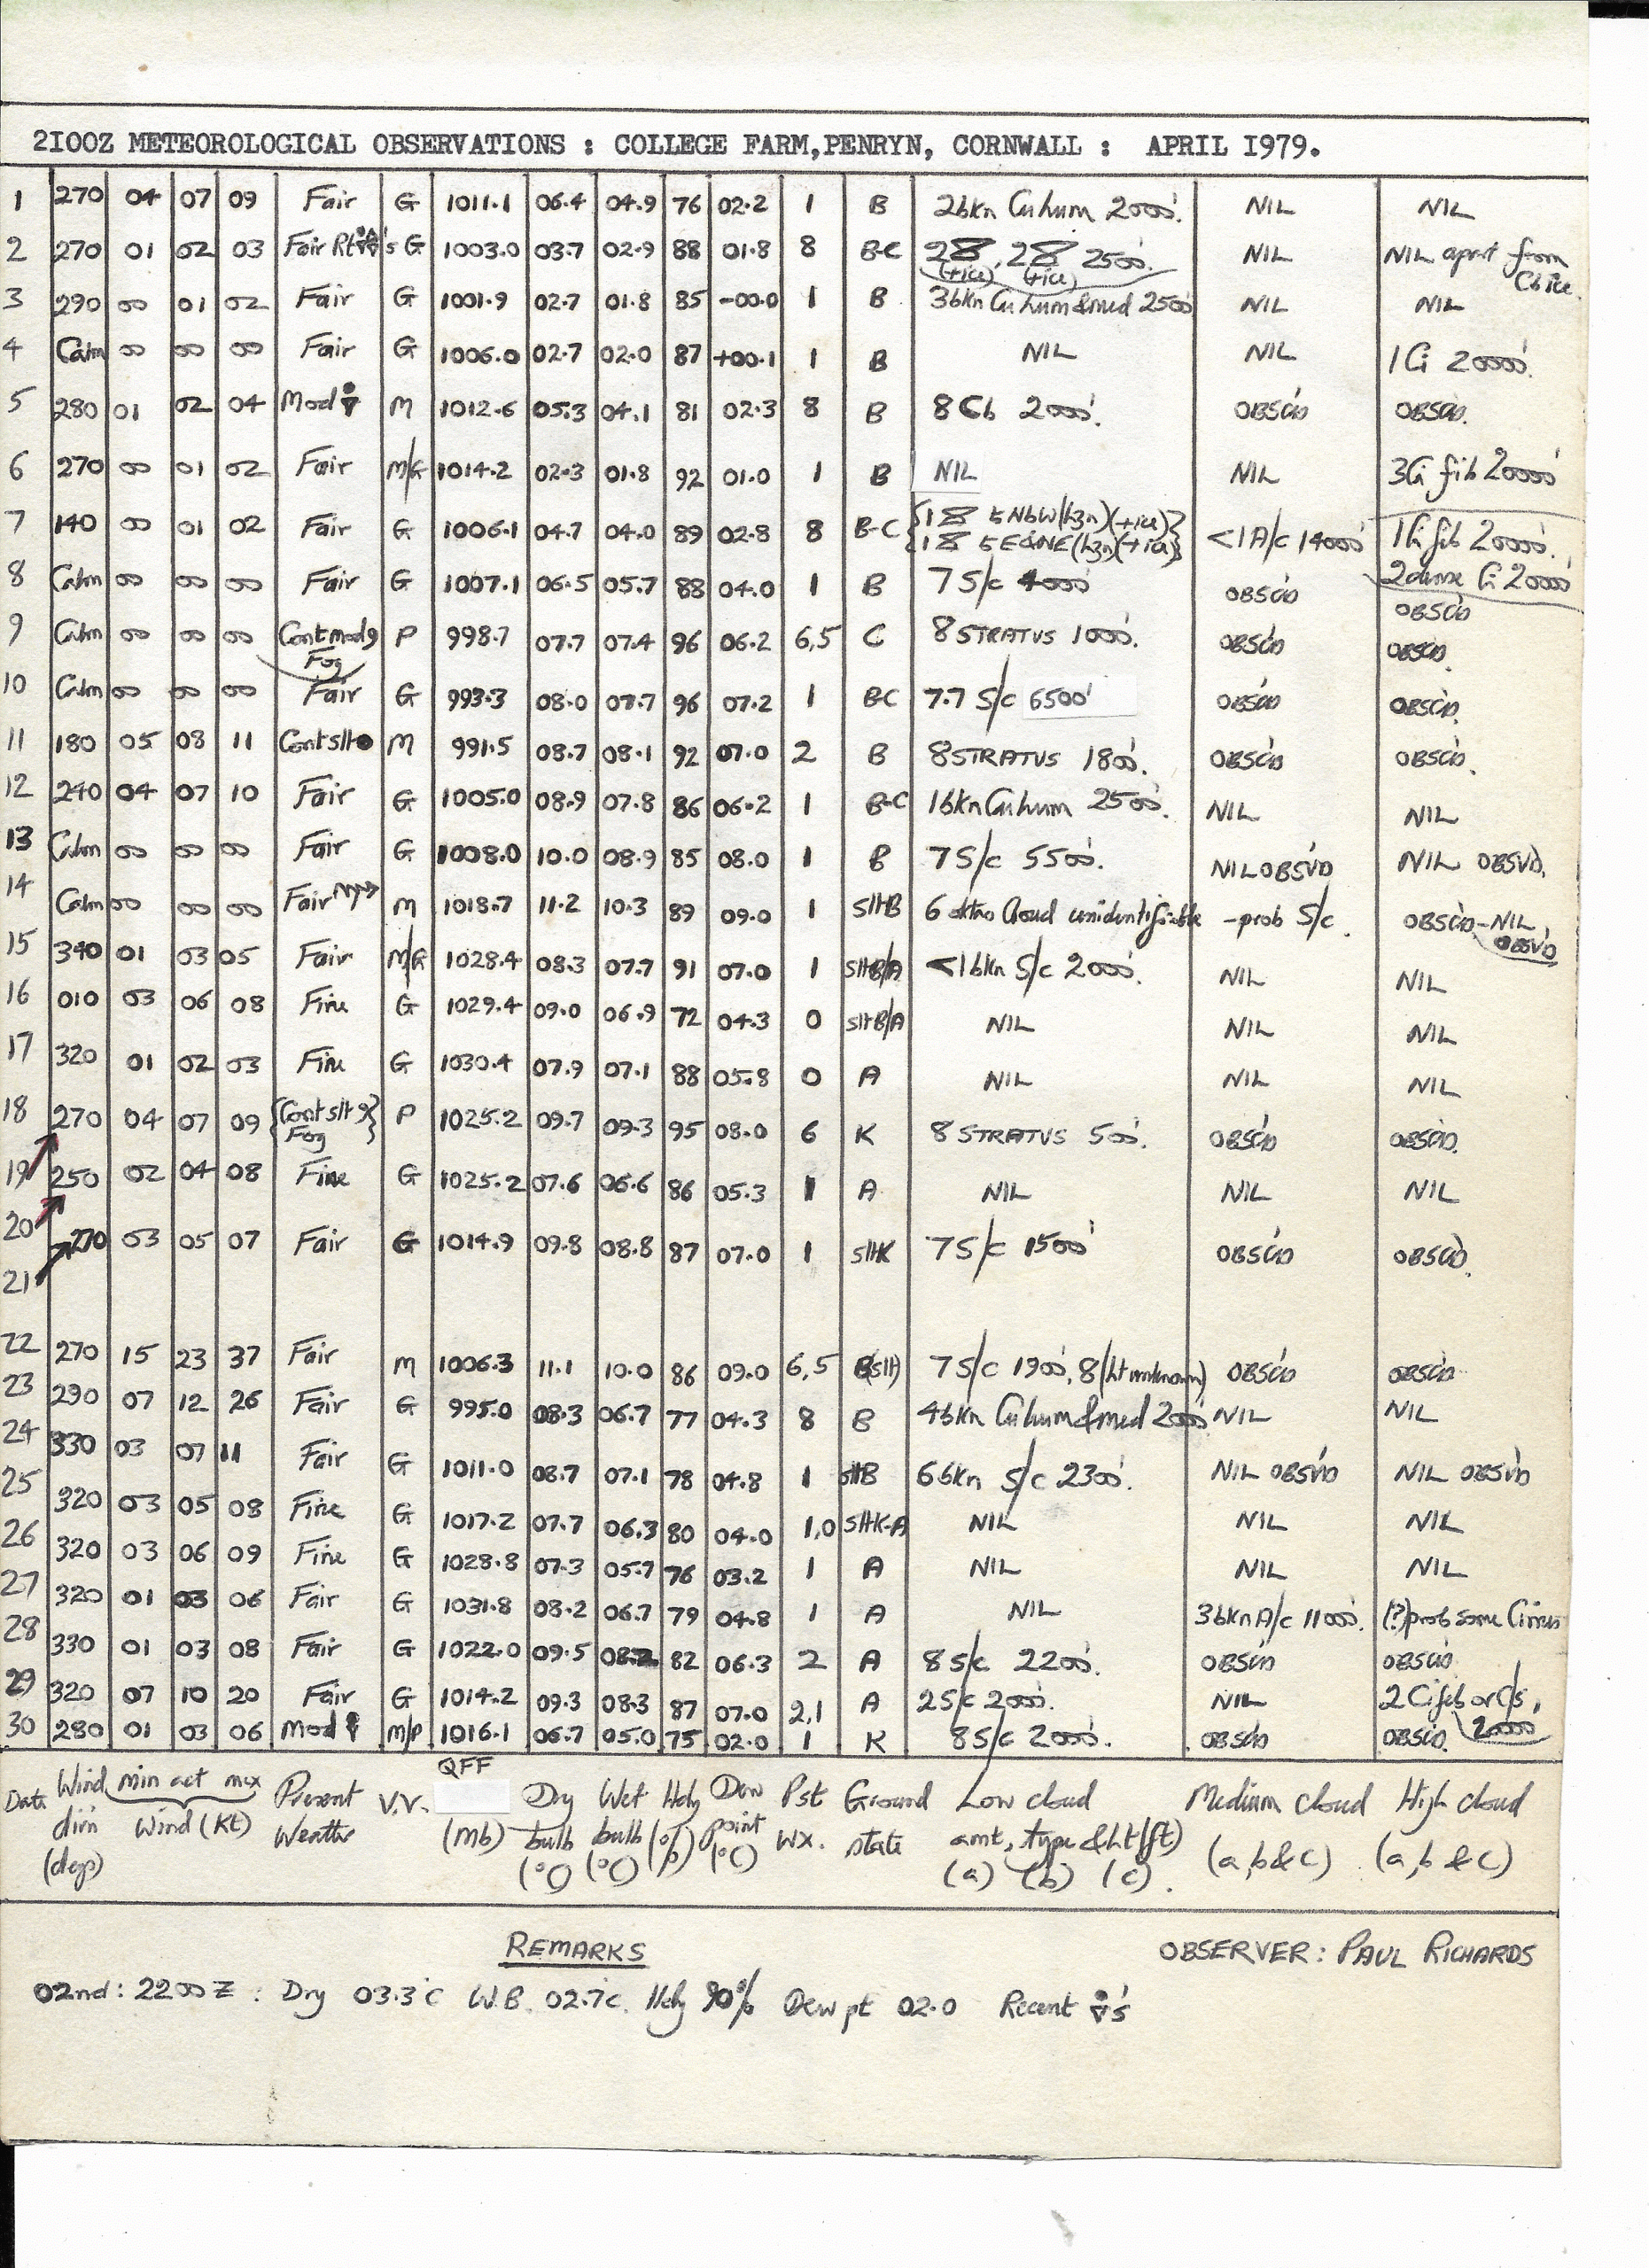 2I00Z METEOROLOGICAL OBSERVATIONS : COLLEGE FARM,PENRYN, CORNWALL : APRIL I979.
1 270 04 07 09 Fair G 1011.1 06.4 04.9 76 02.2 1 B 2bkn Cu hum 2000'. NIL NIL
2 270 01 02 03 Fair Rt 's G 1003.0 03.7 02.9 88 01.8 8 B-C 2 , 2 2500'. NIL NIL apart from
(+ice) (+ice) Cb ice.
3 290 00 01 02 Fair G 1001.9 02.7 01.8 85 -00.0 1 B 3bkn Cu hum & med 2500 NIL NIL
4 Calm 00 00 00 Fair G 1006.0 02.7 02.0 87 +00.1 1 B NIL NIL 1 Ci 20000'.
5 280 01 02 04 Mod M 1012.6 05.3 04.1 81 02.3 8 B 8 Cb 2000'. OBSC'D OBSC'D.
6 270 00 01 02 Fair M/G 1014.2 02.3 01.8 92 01.0 1 B NIL NIL 3Ci fib 20000'
7 140 00 01 02 Fair G 1006.1 04.7 04.0 89 02.8 8 B-C {1 NbW (hzn)(+ice)} <1 A/c 14000' 1Ci fib 20000'.
{1 E&NE (hzn)(+ice)} 2dense Ci 20000'
8 Calm 00 00 00 Fair G 1007.1 06.5 05.7 88 04.0 1 B 7 S/c 4000' OBSC'D OBSC'D
9 Calm 00 00 00 Cont mod 9 P 998.7 07.7 07.4 96 06.2 6,5 C 8 STRATUS 1000'. OBSC'D OBSC'D.
Fog
10 Calm 00 00 00 Fair G 993.3 08.0 07.7 96 07.2 1 B-C 7.7 S/c 6500' OBSC'D OBSC'D.
11 180 05 08 11 Cont slt ● M 991.5 08.7 08.1 92 07.0 2 B 8 STRATUS 1800'. OBSC'D OBSC'D.
12 240 04 07 10 Fair G 1005.0 08.9 07.8 86 06.2 1 B-C 1bkn Cu hum 2500'. NIL NIL
13 Calm 00 00 00 Fair G 1008.0 10.0 08.9 85 08.0 1 B 7 S/c 5500'. NIL OBSV'D NIL OBSVD.
14 Calm 00 00 00 Fair M 1018.7 11.2 10.3 89 09.0 1 SltB 6 oktas Cloud unidentifiable - prob S/c. OBSC'D-NIL
OBSV'D
15 340 01 03 05 Fair M/G 1028.4 08.3 07.7 91 07.0 1 SltB/A <1bkn S/c 2000'. NIL NIL
16 010 03 06 08 Fine G 1029.4 09.0 06.9 72 04.3 0 SltB/A NIL NIL NIL
17 320 01 02 03 Fine G 1030.4 07.9 07.1 88 05.8 0 A NIL NIL NIL
18 270 04 07 09 {Cont slt 9} P 1025.2 09.7 09.3 95 08.0 6 K 8 STRATUS 500'. OBSC'D OBSC'D.
Fog
19 250 02 04 08 Fine G 1025.2 07.6 06.6 86 05.3 1 A NIL NIL NIL
20 270 03 05 07 Fair G 1014.9 09.8 08.8 87 07.0 1 SltK 7 S/c 1500' OBSC'D OBSC'D.
21
22 270 15 23 37 Fair M 1006.3 11.1 10.0 86 09.0 6,5 B(slt) 7 S/c 1900', 8 (ht unknown) OBSC'D OBSC'D
23 290 07 12 26 Fair G 995.0 08.3 06.7 77 04.3 8 B 4bkn Cu hum & med 2000'. NIL NIL
24 330 03 07 11 Fair G 1011.0 08.7 07.1 78 04.8 1 sltB 6bkn S/c 2300'. NIL OBSV'D NIL OBSV'D
25 320 03 05 08 Fine G 1017.2 07.7 06.3 80 04.0 1,0 SltK-A NIL NIL NIL
26 320 03 06 09 Fine G 1028.8 07.3 05.7 76 03.2 1 A NIL NIL NIL
27 320 01 03 06 Fair G 1031.8 08.2 06.7 79 04.8 1 A NIL 3bkn A/c 11000'. (?)prob some Cirrus
28 330 01 03 08 Fair G 1022.0 09.5 08.2 82 06.3 2 A 8 S/c 2200'. OBSC'D OBSC'D
29 320 07 10 20 Fair G 1014.2 09.3 08.3 87 07.0 2,1 A 2 S/c 2000'. NIL 2 Ci fib or C/s,
20000'
30 280 01 03 06 Mod M/P 1016.1 06.7 05.0 75 02.0 1 K 8 S/c 2000'. OBSC'D OBSC'D.
QFF
Date Wind min act max Present V.V. Dry Wet Hdy Dew Pst Ground Low cloud Medium cloud High cloud
dir'n Wind (Kt) Weather (mb) bulb bulb (%) point Wx. state amt, type & ht (ft) (a, b & c) (a, b & c)
(degs) (°C) (°C) (°C) (a) (b) (c).
REMARKS OBSERVER: PAUL RICHARDS
02nd: 2200Z : Dry 03.3°C W.B. 02.7°C. Hdy 90% Dew pt 02.0 Recent 's